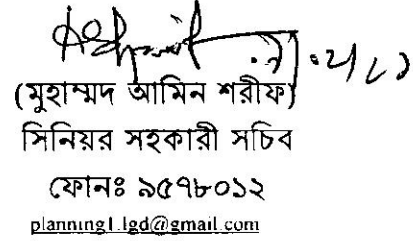 (মুহাম্মদ আমিন শরীফ)
সিনিয়র সহকারী সচিব
ফোনঃ ৯৫৭৮০১২
planning1.lgd@gmail.com